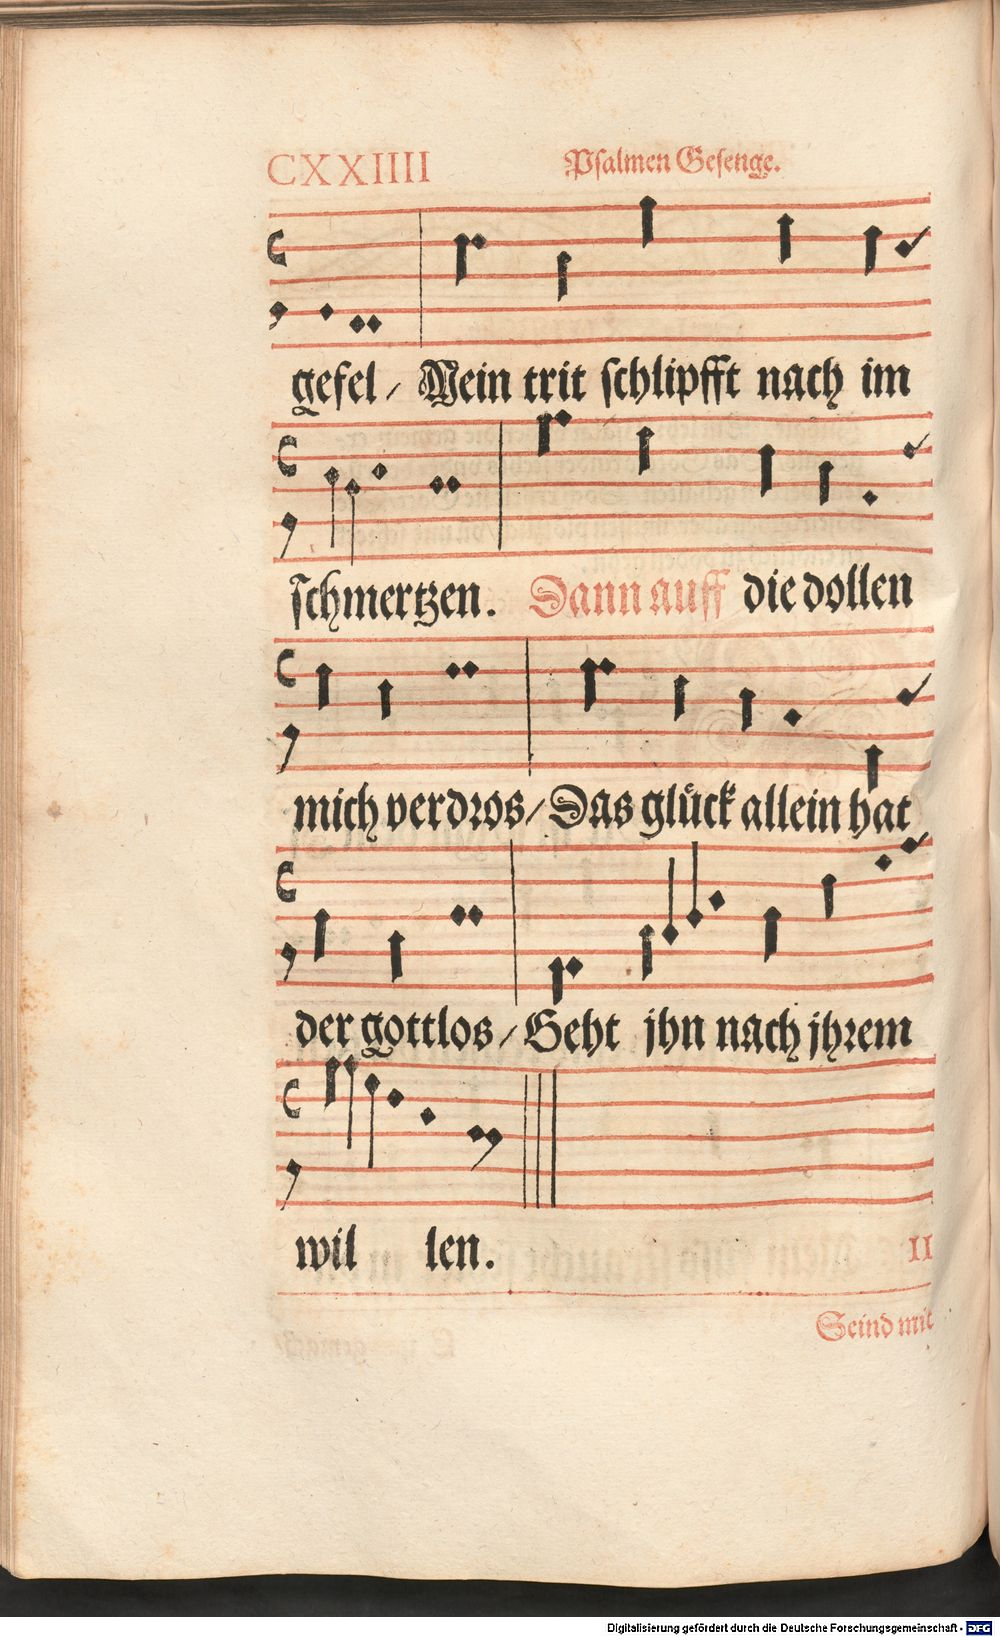 CXXIIII
Psalmen Gesenge.
gefel / Mein trit schlipfft nach im
schmertzen. Dann auff die dollen
mich verdros / Das glück allein hat
der gottlos / Geht jhn nach jhrem
wil len.
II
Seind mit
Digitalisierung gefördert durch die Deutsche Forschungsgemeinschaft - DFG